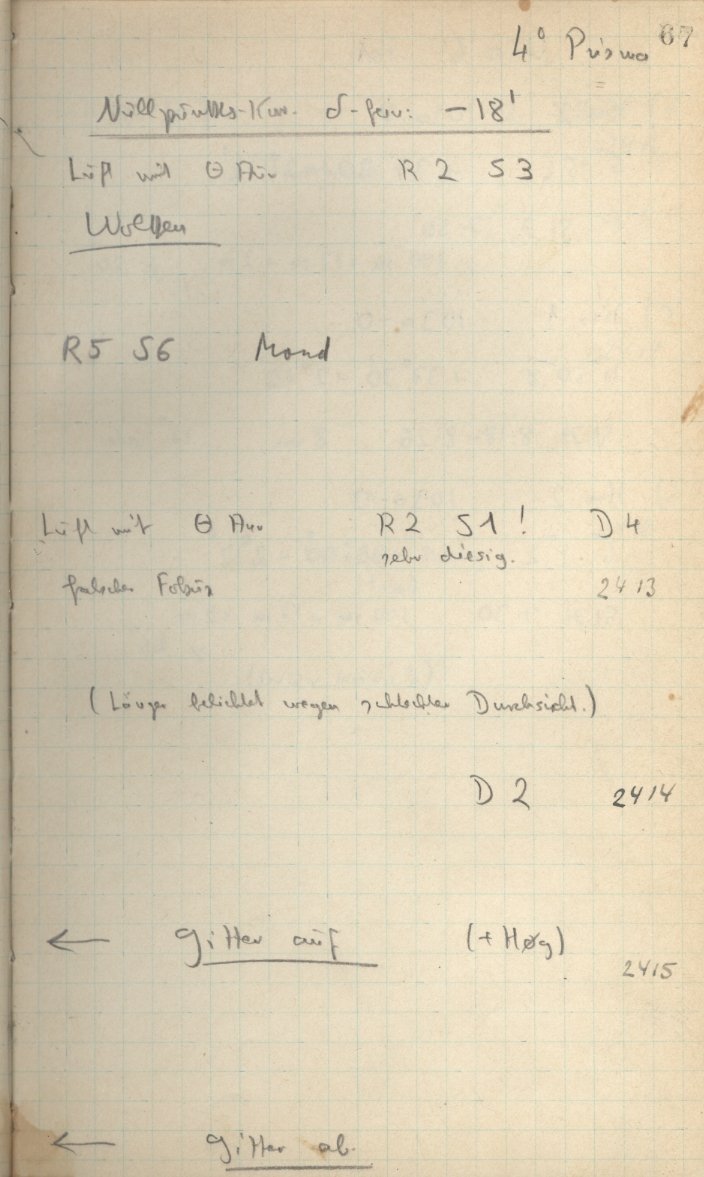 4° Prisma 67
Nullpunkts-Kor. δ-fein: -18'
Luft mit θ Aur R 2 S 3
Wolken
R5 S6 Mond
Luft mit θ Aur R 2 S 1 ! D 4
sehr diesig.
falscher Fokus 2413
(Länger belichtet wegen schlechter Durchsicht.)
D 2 2414
← Gitter auf (+ Høg)
2415
← Gitter ab.